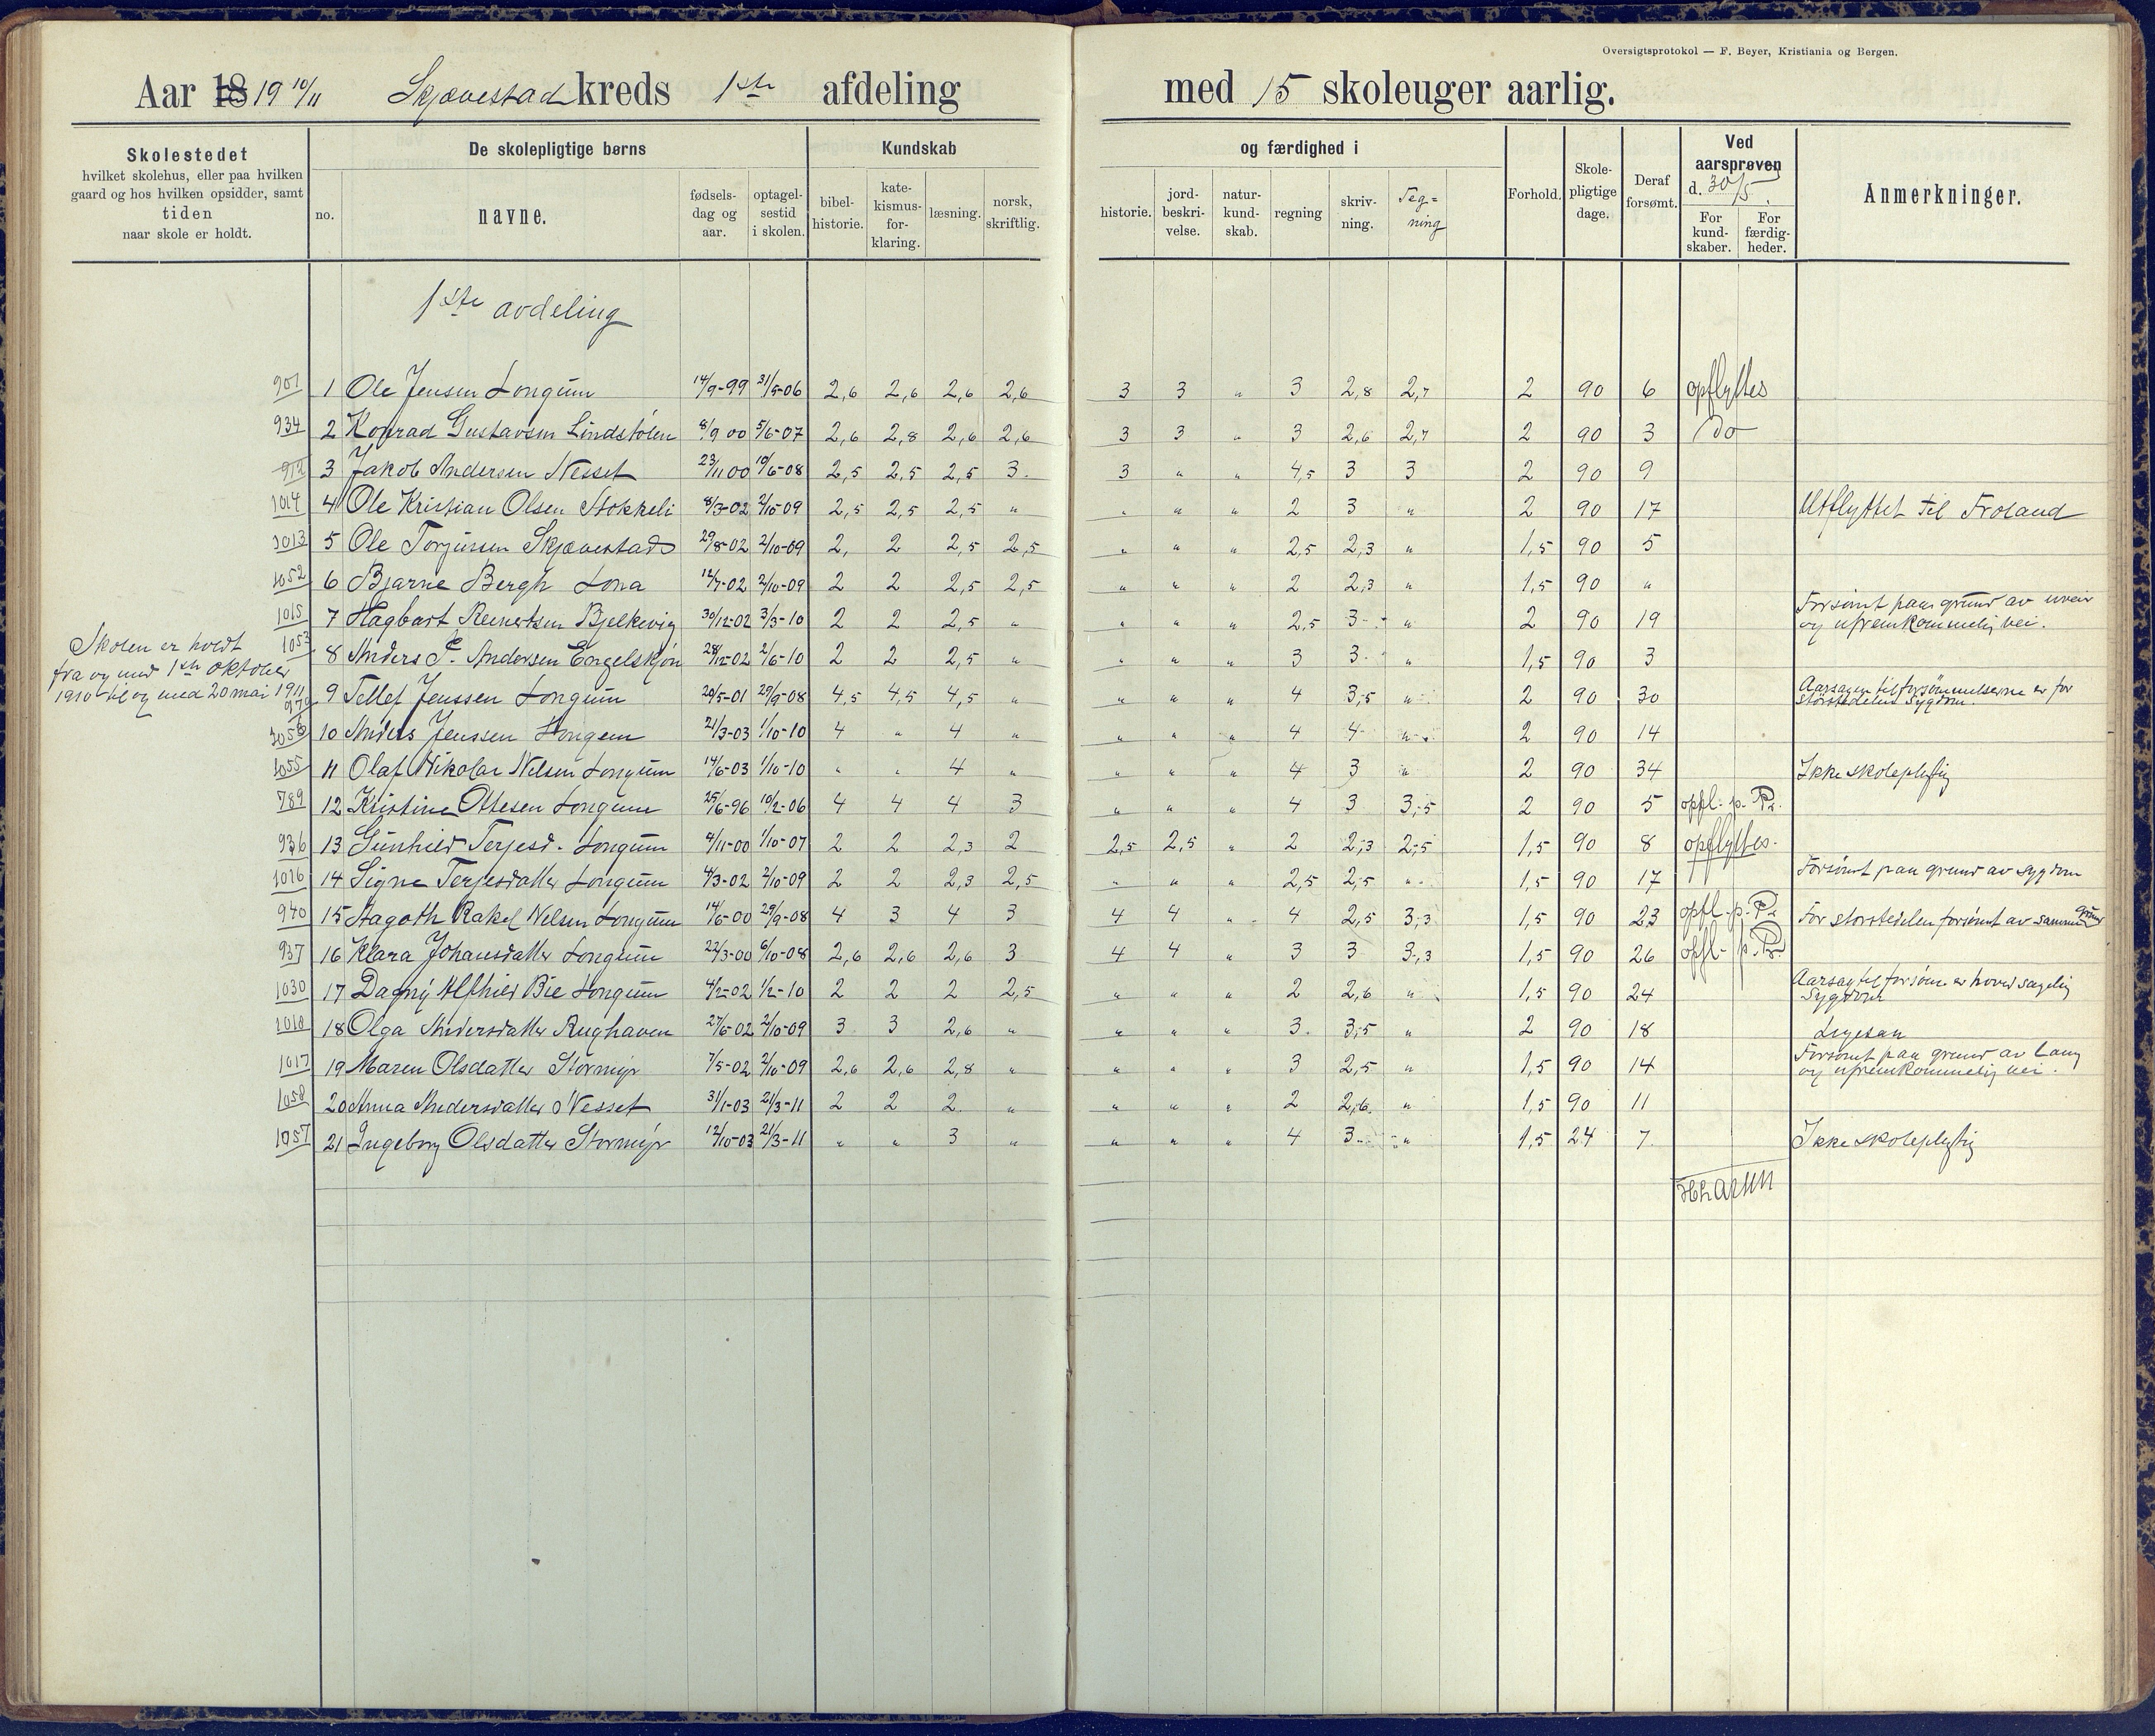 Oversigtsprotokol — F. Beyer, Kristiania og Bergen.
Aar 18 19 10/11 Skjævestad kreds 1ste afdeling med 15 skoleuger aarlig.
Skolestedet
hvilket skolehus, eller paa hvilken
gaard og hos hvilken opsidder, samt
tiden
naar skole er holdt.
De skolepligtige børns
no.
navne.
fødsels-
dag og
aar.
optagel-
sestid
i skolen.
Kundskab
bibel-
historie.
kate-
kismus-
for-
klaring.
læsning.
norsk,
skriftlig.
og færdighed i
historie.
jord-
beskri-
velse.
natur-
kund-
skab.
regning
skriv-
ning.
Teg=
ning
Forhold.
Skole-
pligtige
dage.
Deraf
forsømt.
Ved
aarsprøven
d. 30/5.
For
kund-
skaber.
For
færdig-
heder.
Anmerkninger.
1ste avdeling
901 1 Ole Jensen Longum 14/9-99 31/5-06 2,6 2,6 2,6 2,6 3 3 " 3 2,8 2,7 2 90 6 opflyttes
934 2 Konrad Gustavsen Lindstölen 8/9 00 5/6-07 2,6 2,8 2,6 2,6 3 3 " 3 2,6 2,7 2 90 3 do
912 3 Jakob Andersen Nesset 23/11 00 10/6-08 2,5 2,5 2,5 3. 3 " " 4,5 3 3 2 90 9
1014 4 Ole Kristian Olsen Stokkeli 8/3-02 2/10-09 2,5 2,5 2,5 " " " " 2 3 " 2 90 17 Utflyttet til Froland
1013 5 Ole Torjussen Skjævestad 29/8-02 2/10-09 2, 2 2,5 2,5 " " " 2,5 2,3 " 1,5 90 5
1052 6 Bjarne Bergh Lona 12/7-02 2/10-09 2 2 2,5 2,5 " " " 2 2,3 " 1,5 90 "
1015 7 Hagbart Reinertsen Bjelkevig 30/12-02 3/3-10 2 2 2,5 " " " " 2,5 3 " 2 90 19 Forsömt paa grund av uveir
og ufremkommelig vei.
Skolen er holdt
fra og med 1ste oktober
1910 til og med 20 mai 1911
1053 8 Anders P. Andersen Engelskjön 28/12-02 2/6-10 2 2 2,5 " " " " 3 3 " 1,5 90 3
970 9 Tellef Jenssen Longum 20/5-01 29/9-08 4,5 4,5 4,5 " " " " 4 3,5 " 2 90 30 Aarsagen til forsömmelserne er for
störstedelen Sygdom.
1056 10 Anders Jenssen Longum 21/3-03 1/10-10 4 " 4 " " " " 4 4 " 2 90 14
1055 11 Olaf Nikolai Nilsen Longum 14/6-03 1/10-10 " " 4 " " " " 4 3 " 2 90 34 Ikke skolepligtig
789 12 Kristine Ottesen Longum 25/6-96 10/2-06 4 4 4 3 " " " 4 3 3,5 2 90 5 opfl. p. Pr.
936 13 Gunhild Terjesd. Longum 4/11-00 1/10-07 2 2 2,3 2 2,5 2,5 " 2 2,3 2,5 1,5 90 8 opflyttes.
1016 14 Signe Terjesdatter Longum 4/3-02 2/10-09 2 2 2,3 2,5 " " " 2,5 2,5 " 1,5 90 17 Forsömt paa grund av sygdom
940 15 Aagoth Rakel Nilsen Longum 14/6-00 29/9-08 4 3 4 3 4 4 " 4 2,5 3,3 1,5 90 23 opfl. p. Pr. For störstedelen forsömt av samme grund
937 16 Klara Johansdatter Longum 22/3-00 6/10-08 2,6 2,6 2,6 3 4 4 " 3 3 3,3 1,5 90 26 opfl. p. Pr.
1030 17 Dagny Alfhild Bie Longum 4/2-02 1/2-10 2 2 2 2,5 " " " 2 2,6 " 1,5 90 24 Aarsag til forsöm. er hovedsagelig
Sygdom
1018 18 Olga Andersdatter Rughaven 27/6-02 2/10-09 3 3 2,6 " " " " 3 3,5 " 2 90 18 Ligesaa
1017 19 Maren Olsdatter Stormyr 7/5-02 2/10-09 2,6 2,6 2,8 " " " " 3 2,5 " 1,5 90 14 Forsömt paa grund av lang
og ufremkommelig vei.
1058 20 Anna Andersdatter Nesset 31/1-03 21/3-11 2 2 2 " " " " 2 2,6 " 1,5 90 11
1057 21 Ingeborg Olsdatter Stormyr 12/10-03 21/3-11 " " 3 " " " " 4 3 " 1,5 24 7 Ikke skolepligtig